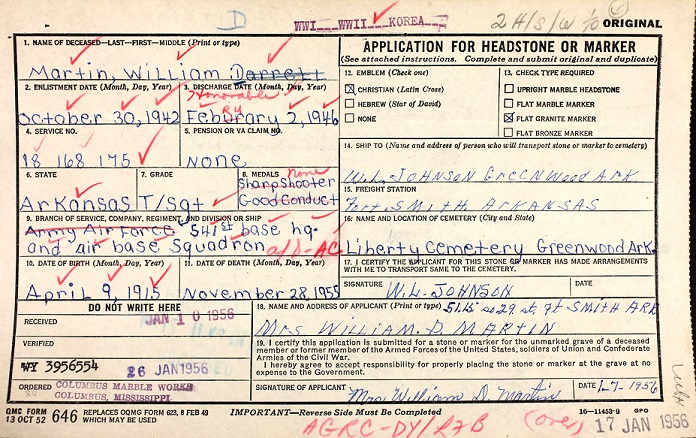 D WWI WWII KOREA 2 H/S/W ORIGINAL
1. NAME OF DECEASED—LAST—FIRST—MIDDLE (Print or type)
Martin, William Darrett
2. ENLISTMENT DATE (Month, Day, Year) 3. DISCHARGE DATE (Month, Day, Year)
Honorable
October 30, 1942 February 2, 1946
RY
4. SERVICE NO. 5. PENSION OR VA CLAIM NO.
18 168 175 None
6. STATE 7. GRADE 8. MEDALS none
Sharpshooter
Arkansas T/Sgt Good Conduct
9. BRANCH OF SERVICE, COMPANY, REGIMENT, AND DIVISION OR SHIP
Army Air Force 541st base hq.
and air base Squadron
10. DATE OF BIRTH (Month, Day, Year) 11. DATE OF DEATH (Month, Day, Year)
April 9, 1915 November 28, 1955
DO NOT WRITE HERE
RECEIVED JAN 10 1956
VERIFIED
WY 3956554
26 JAN 1956
ORDERED COLUMBUS MARBLE WORKS
COLUMBUS, MISSISSIPPI
APPLICATION FOR HEADSTONE OR MARKER
(See attached instructions. Complete and submit original and duplicate)
12. EMBLEM (Check one) 13. CHECK TYPE REQUIRED
X CHRISTIAN (Latin Cross) UPRIGHT MARBLE HEADSTONE
HEBREW (Star of David) FLAT MARBLE MARKER
NONE X FLAT GRANITE MARKER
FLAT BRONZE MARKER
14. SHIP TO (Name and address of person who will transport stone or marker to cemetery)
W.L. JOHNSON GREENWOOD ARK.
15. FREIGHT STATION
Fort SMITH, ARKANSAS
16. NAME AND LOCATION OF CEMETERY (City and State)
Liberty Cemetery Greenwood Ark.
17. I CERTIFY THE APPLICANT FOR THIS STONE OR MARKER HAS MADE ARRANGEMENTS
WITH ME TO TRANSPORT SAME TO THE CEMETERY.
SIGNATURE W.L. JOHNSON DATE
18. NAME AND ADDRESS OF APPLICANT (Print or type) so 29 st. Ft SMITH ARK
MRS WILLIAM. D. MARTIN
19. I certify this application is submitted for a stone or marker for the unmarked grave of a deceased
member or former member of the Armed Forces of the United States, soldiers of Union and Confederate
Armies of the Civil War.
I hereby agree to accept responsibility for properly placing the stone or marker at the grave at no
expense to the Government.
SIGNATURE OF APPLICANT Mrs William D. Martin DATE 1-7-1956
QMC FORM 13 OCT 52 646 REPLACES OQMG FORM 623, 8 FEB 49 WHICH MAY BE USED IMPORTANT—Reverse Side Must Be Completed 16—11453-9 GPO
(over) 17 JAN 1956